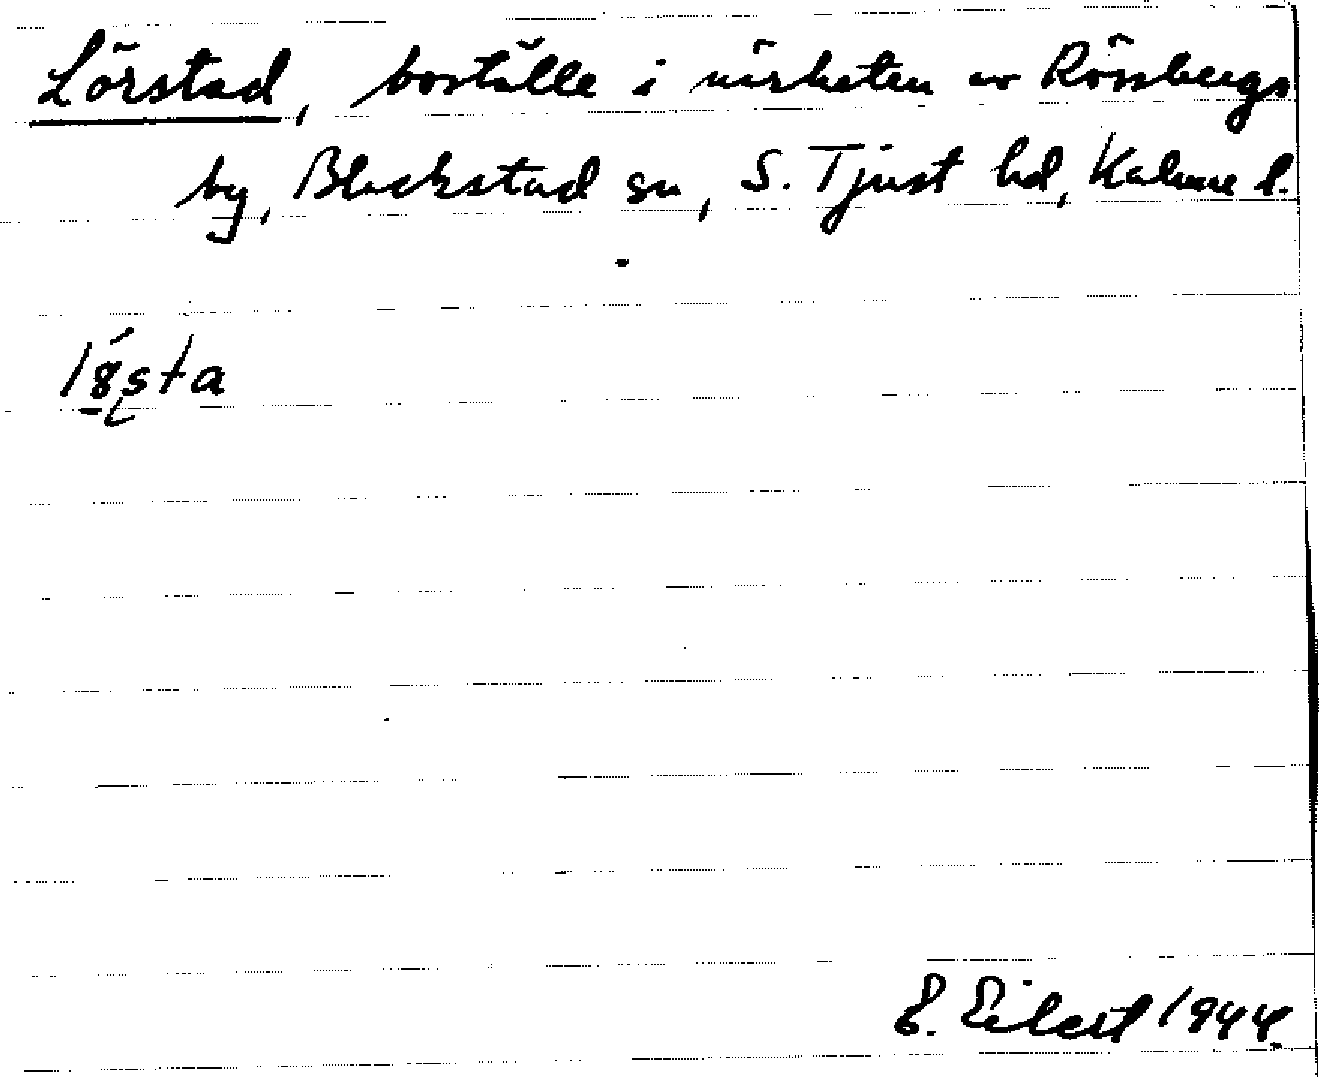 Lörstad, boställe i närheten av Rönsbergs
by, Blackstad sn, S. Tjust hd, Kalmar l.
E. Eilert 1944